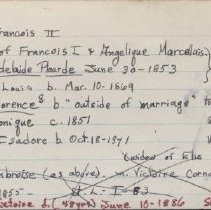 Francois II
of Francois I & Angelique Marcelais
delaide Plourde June 30-1853
Louis b. Mar. 10-1869
lorence b "outside of marriage"
onique c. 1851
Isadore b Oct. 18-1871
(widow of Elie
mbroise (as above). m. Victoire Corne
1855- d. L-I-83
ictoire d. (48 yrs) June 10-1886